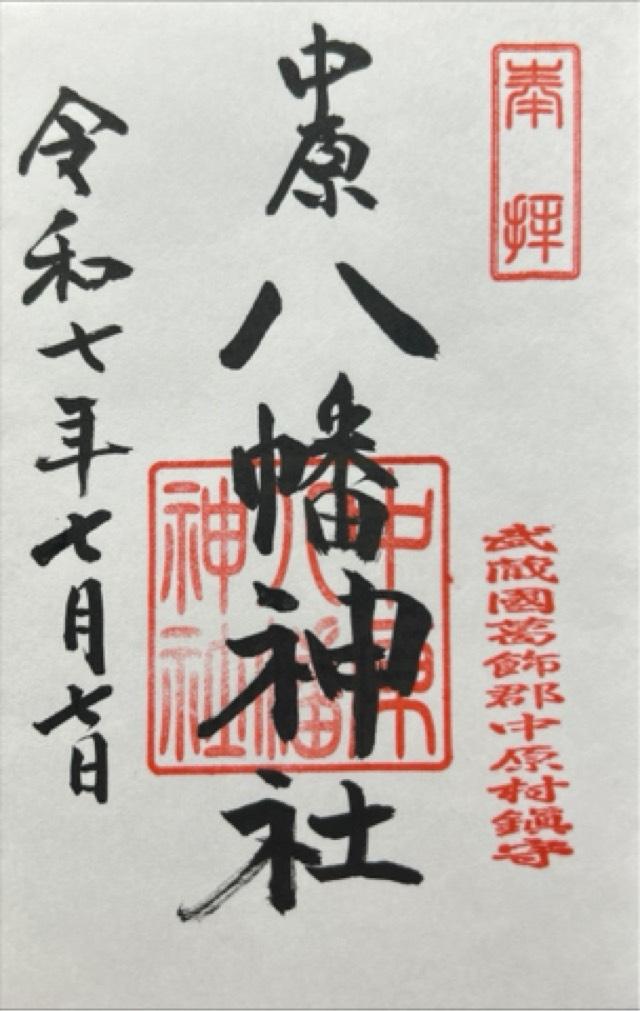 奉拝
武蔵國葛飾郡中原村鎮守
中原
八幡神社
中原
八幡
神社
令和七年七月七日